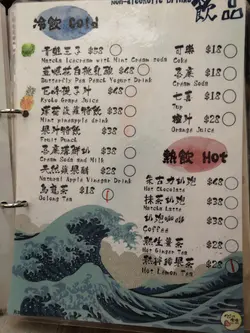 Non-alcoholic Drinks
飲品
冷飲 Cold
$58
Matcha Icecream with Mint Cream soda
$68
Butterfly Pea Pench Yogurt Drink
$48
Kyoho Grape Juice
$48
Mint pineapple drink
果汁特飲 $38
Fruit Punch
喜產溝鮮奶 $38
Cream Soda and Milk
天然蘋果醋 $28
Natural Apple Vinegar Drink
烏龍茶 $18
Oolong Tea
可樂 $18
Coke
忌廉 $18
Cream Soda
七喜 $18
7up
橙汁 $28
Orange Juice
熱飲 Hot
朱古力奶泡 $48
Hot Chocolate
抹茶奶泡 $48
Matcha Latte
奶泡咖啡 $38
Coffee
熱生薑茶 $28
Hot Ginger Tea
熱檸檬果茶 $28
Hot Lemon Tea